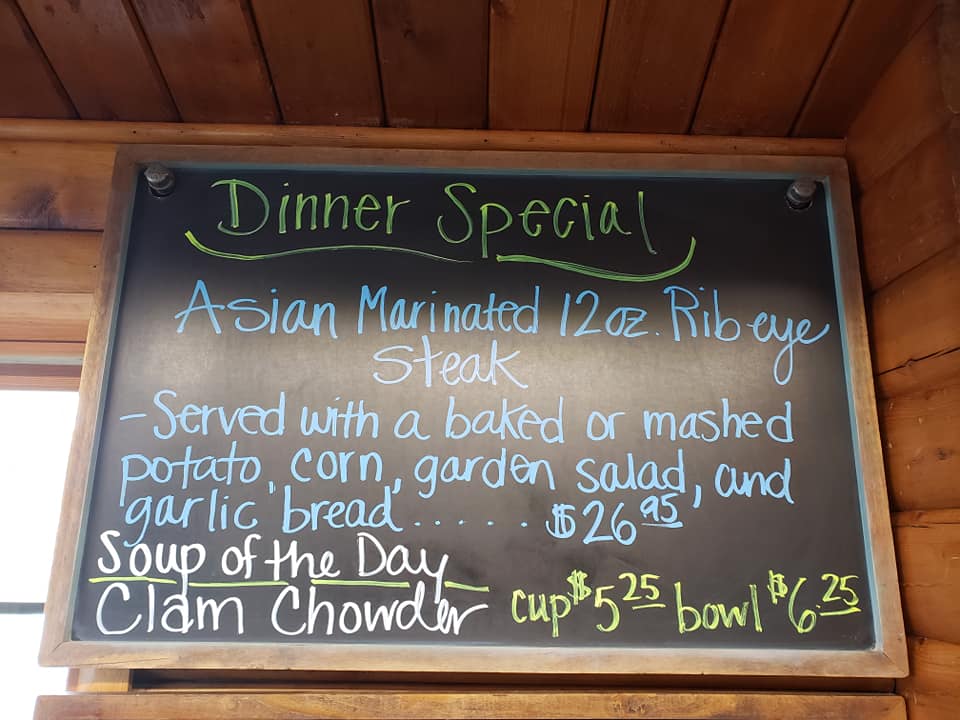 Dinner Special
Asian Marinated 12oz. Rib eye
Steak
-Served with a baked or mashed
potato, corn, garden salad, and
garlic bread...... $26 95
Soup of the Day
Clam Chowder cup $5 25 bowl $6.25